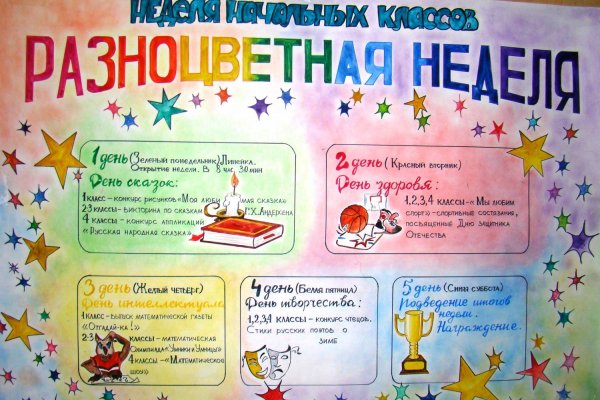 НЕДЕЛЯ НАЧАЛЬНЫХ КЛАССОВ
РАЗНОЦВЕТНАЯ НЕДЕЛЯ
1 день (Зеленый понедельник) Линейка.
Открытие недели. В 8 час. 30 мин
День сказок:
1 класс – конкурс рисунков «Моя люби мая сказка»
2-3 классы – викторина по сказкам Г.Х. Андерсена
4 классы – конкурс аппликаций
«Русская народная сказка»
2 день (Красный вторник)
День здоровья:
1,2,3,4 классы – «Мы любим
спорт» – спортивные состязания,
посвященные Дню защитника
Отечества
3 день (Желтый четверг)
День интеллектуала
1 класс – выпуск математической газеты
«Отгадай-ка!»
2-3 классы – математическая
Олимпиада «Умники и Умницы»
4 классы – «Математическое
шоу»
4 день (Белая пятница)
День творчества:
1,2,3,4 классы – конкурс чтецов.
Стихи русских поэтов о
зиме
5 день (Синяя суббота)
Подведение итогов
недели.
Награждение.